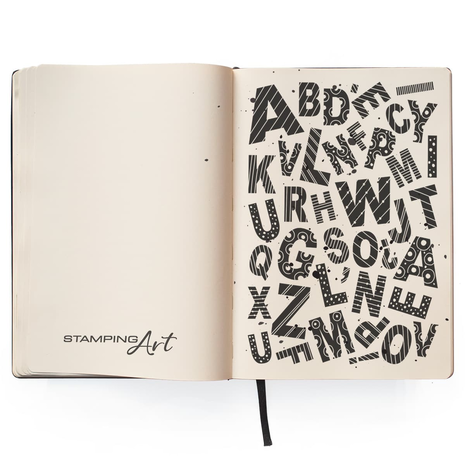 STAMPING Art
A B D E I
K V L N F P C Y
U R H W M I
Q G S O L J T
X Z L N E A
U F M A I O V